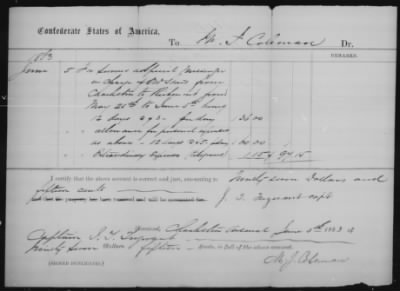 Confederate States of America,
To M. J. Coleman Dr.
REMARKS.
1863
June 5 For services as Special Messenger
in charge of Ord Stores from
Charleston to Richmond from
May 25th to June 5th being
12 days @ 3.- per day 36.00
" allowance for personal expenses
as above - 12 days @ 5. day 60.00
" Extraordinary Expenses 1.15 $97.15
I certify that the above account is correct and just, amounting to Ninety seven Dollars and
fifteen cents
J. T. Capt
Received, Charleston Arsenal June 5th 1863 of
Captain J. T.
ninety seven Dollars & fifteen Cents, in full of the above account.
M. J. Coleman
(SIGNED DUPLICATES.)